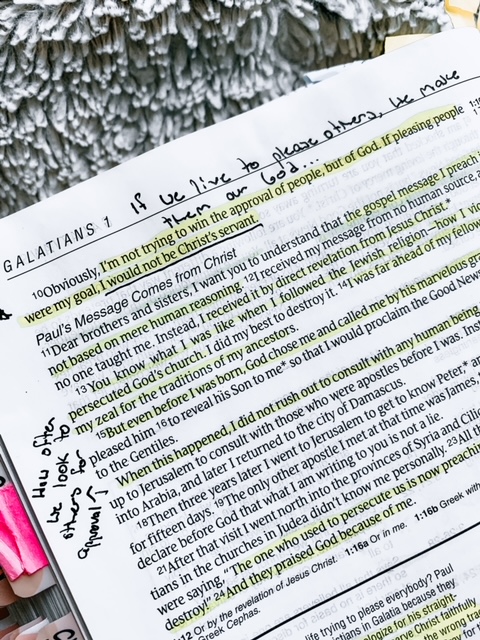 If we live to please others, we make
them our God...
GALATIANS 1
10Obviously, I'm not trying to win the approval of people, but of God. If pleasing people
were my goal, I would not be Christ's servant.
Paul's Message Comes from Christ
11Dear brothers and sisters, I want you to understand that the gospel message I preach
not based on mere human reasoning. 12I received my message from no human source, a
no one taught me. Instead, I received it by direct revelation from Jesus Christ.*
13You know what I was like when I followed the Jewish religion—how I vio
persecuted God's church. I did my best to destroy it. 14I was far ahead of my fellow
my zeal for the traditions of my ancestors.
15But even before I was born, God chose me and called me by his marvelous gr
pleased him 16to reveal his Son to me* so that I would proclaim the Good New
to the Gentiles.
When this happened, I did not rush out to consult with any human being
up to Jerusalem to consult with those who were apostles before I was. Inst
into Arabia, and later I returned to the city of Damascus.
18Then three years later I went to Jerusalem to get to know Peter,* an
for fifteen days. 19The only other apostle I met at that time was James,
declare before God that what I am writing to you is not a lie.
21After that visit I went north into the provinces of Syria and Cilic
tians in the churches in Judea didn't know me personally. 23All
were saying, "The one who used to persecute us is now preachin
destroy!" 24And they praised God because of me.
1:12 Or by the revelation of Jesus Christ. 1:16a Or in me. 1:16b Greek with
Greek Cephas.
How often
we look to
others for
approval
trying to please everybody? Paul
ans in Galatia because they
gize for his straight-
ve Christ faithfully
wrong tra